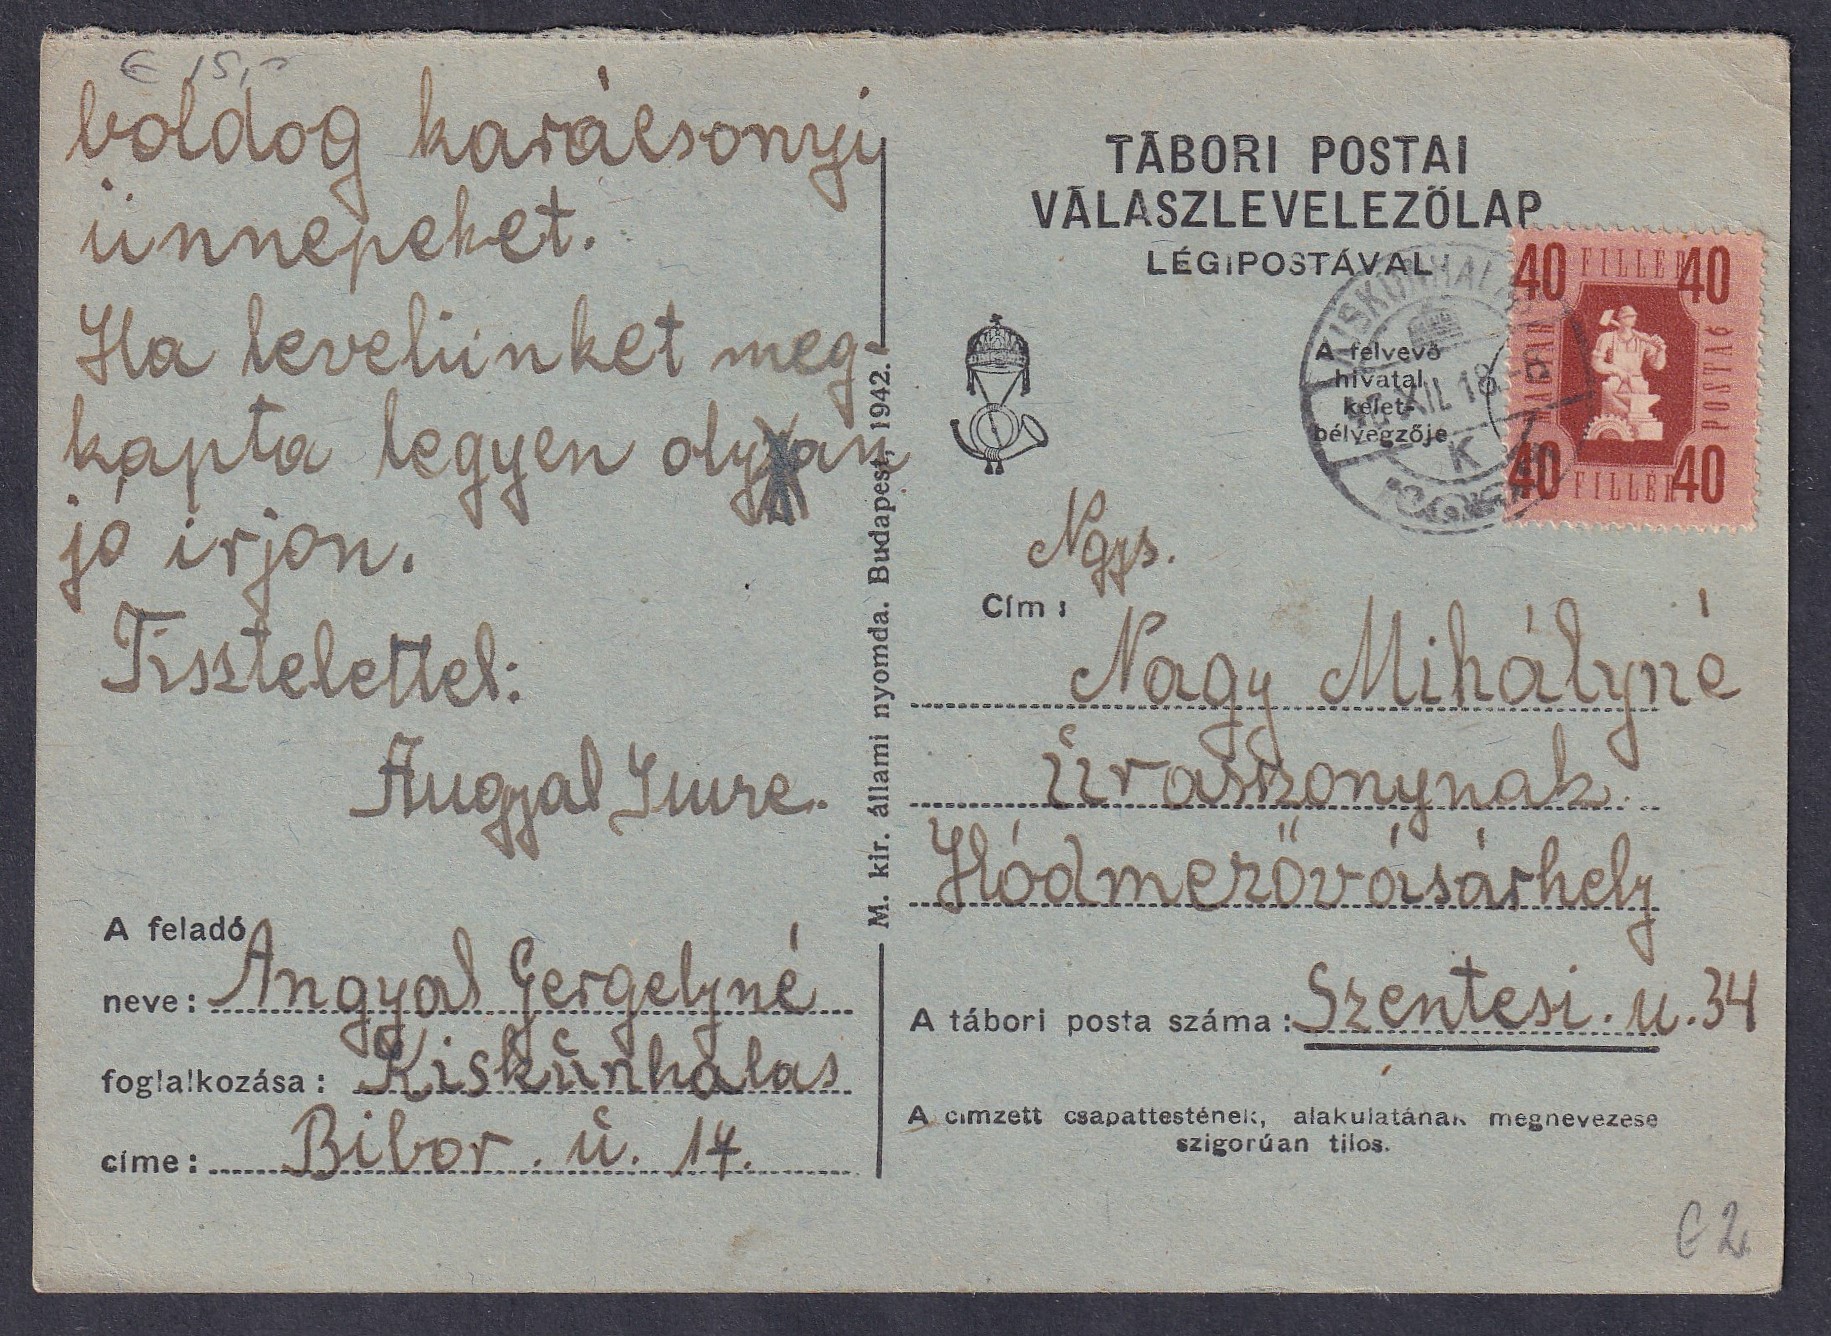 € 15,-
boldog karácsonyi
ünnepeket.
Ha levelünket meg-
kapta legyen olyan
jó irjon.
Tisztelettel:
Angyal Imre.
A feladó
neve: Angyal Gergelyné
foglalkozása: Kiskúnhalas
címe: Bibor. ú. 14.
M. kir. állami nyomda. Budapest, 1942.
TÁBORI POSTAI
VÁLASZLEVELEZŐLAP
LÉGIPOSTÁVAL
A felvevő
hivatal
kelet-
bélyegzője
KISKUNHALAS
XII. 18.-8
K
40 FILLÉR 40
MAGYAR
POSTA
40 FILLÉR 40
Ngys.
Cím:
Nagy Mihályné
úrasszonynak.
Hódmezővásárhely
A tábori posta száma: Szentesi. u. 34
A címzett csapattestének, alakulatának megnevezése
szigorúan tilos.
C2